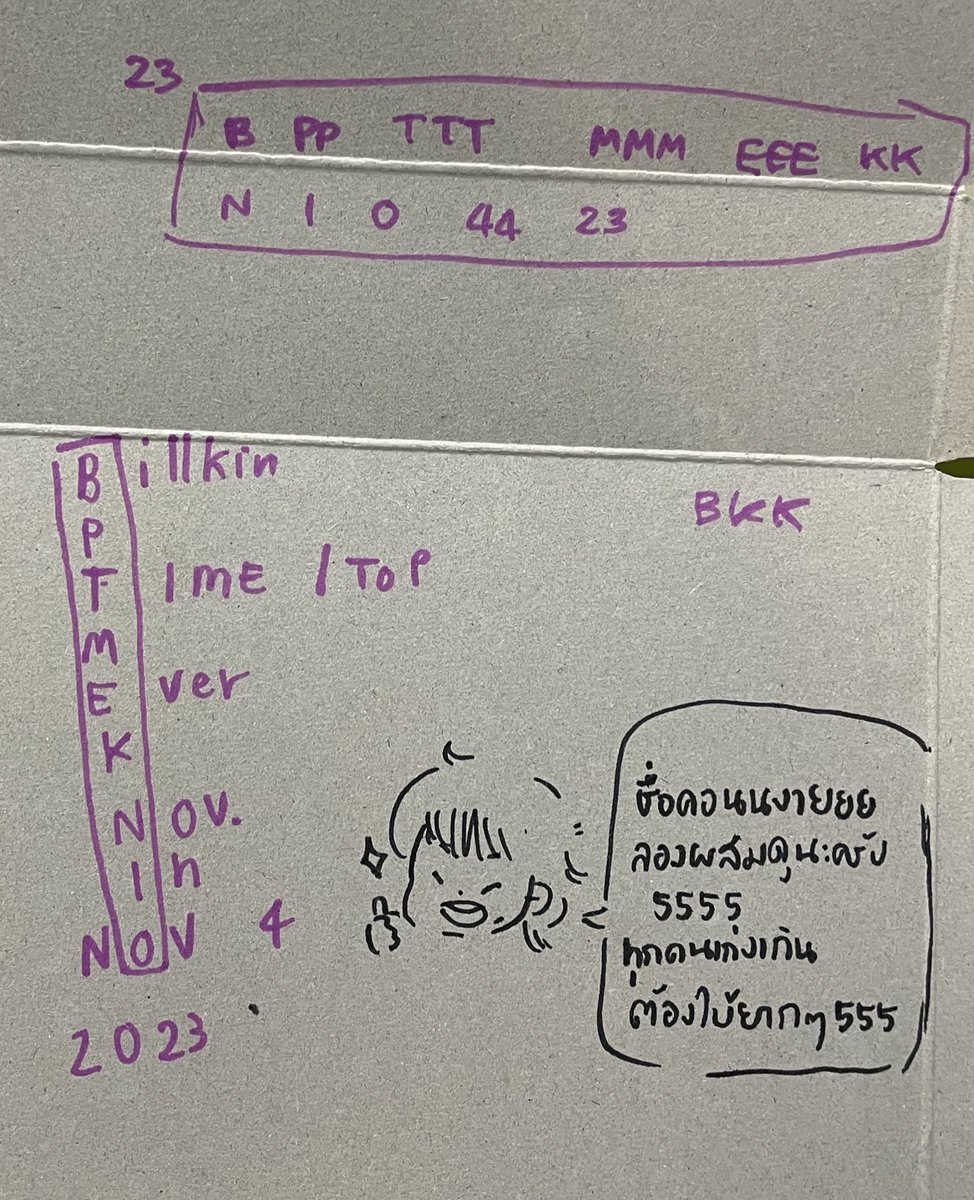 23
B PP TTT MMM EEE KK
N 1 0 44 23
Billkin
BKK
P
TIME / TOP
M
Ever
K
Nov.
In
NOV 4
2023
ชื่อคอนนงายยย
ลองผสมดูนะครับ
5555
ทุกคนเก่งเกิน
ต้องใบ้ยากๆ 555